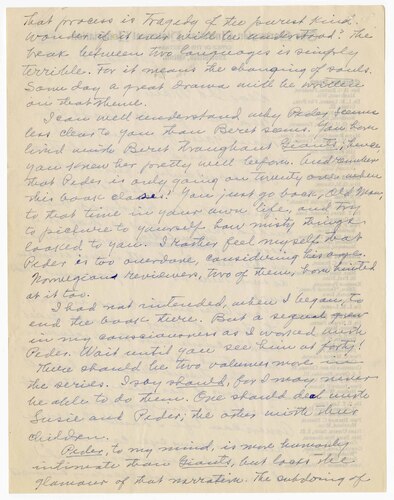 that process is Tragedy of the purest kind.
Wonder if it ever will be understood? The
break between two languages is simply
terrible. For it means the changing of souls.
Some day a great drama will be written
on that theme.
I can well understand why Peder seems
less close to you than Beret seems. You have
lived with Beret throughout Giants, hence
you knew her pretty well before. And remember
that Peder is only going on twenty one when
this book closes! You just go back, Old Man,
to that time in your own life, and try
to picture to yourself how misty things
looked to you. I rather feel myself that
Peder is too overdone, considering his age.
Norwegian reviewers, two of them, have hinted
at it too.
I had not intended, when I began, to
end the book there. But a sequel grew
in my consciousness as I worked with
Peder. Wait until you see him at forty!
There should be two volumes more in
the series. I say should, for I may never
be able to do them. One should deal with
Susie and Peder, the other with their
children.
Peder, to my mind, is more humanly
intimate than Giants, but lacks the
glamour of that narrative. The subduing of